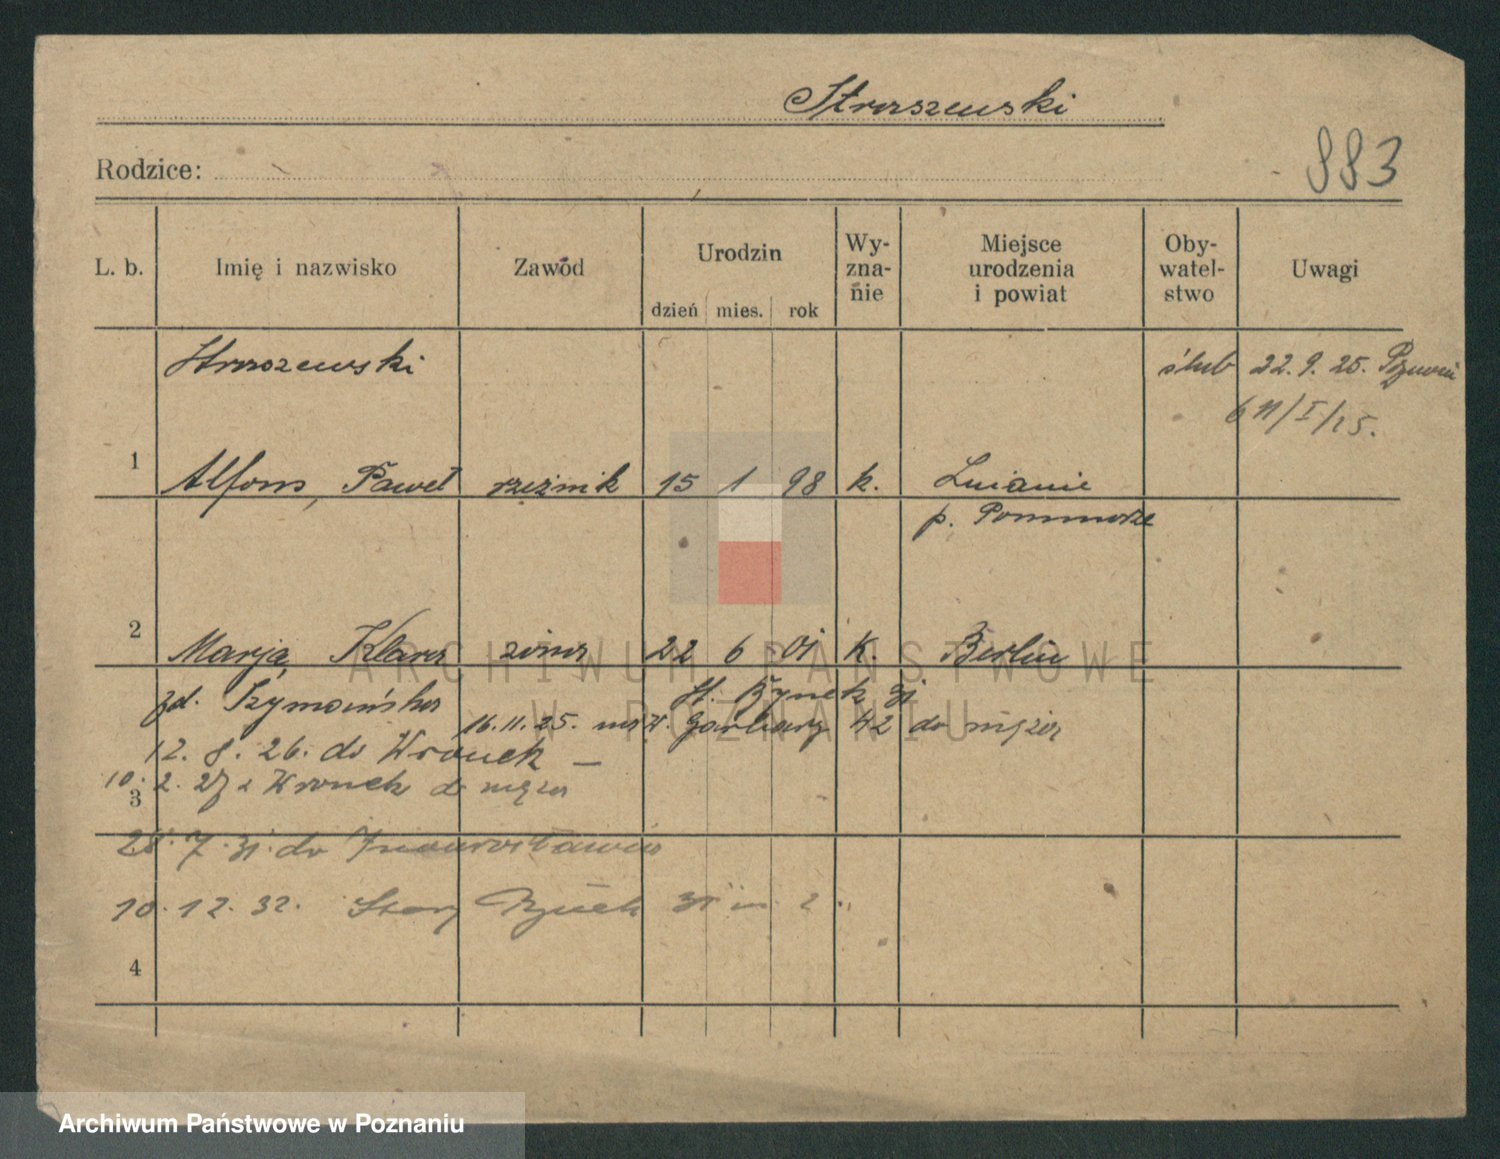 Straszewski
Rodzice:
883
L. b. Imię i nazwisko Zawód Urodzin dzień mies. rok Wy-zna-nie Miejsce urodzenia i powiat Oby-watel-stwo Uwagi
Straszewski ślub 22. 9. 25. Poznań
1 Alfons, Paweł rzeźnik 15 1 98 k. Lnianie
p. Pommorze
2 Marja Klara żona 22 6 01 k. Berlin
zd. Szymańska St. Rynek 31
16. 11. 25. Garbary 42 do męża
12. 8. 26. do Wronek —
10. 2. 27 z Wronek do męża
3
28. 7. 31. do Inowrocławia
10. 12. 32. Stary Rynek 31 m. 2
4
ARCHIWUM PAŃSTWOWE
W POZNANIU
Archiwum Państwowe w Poznaniu